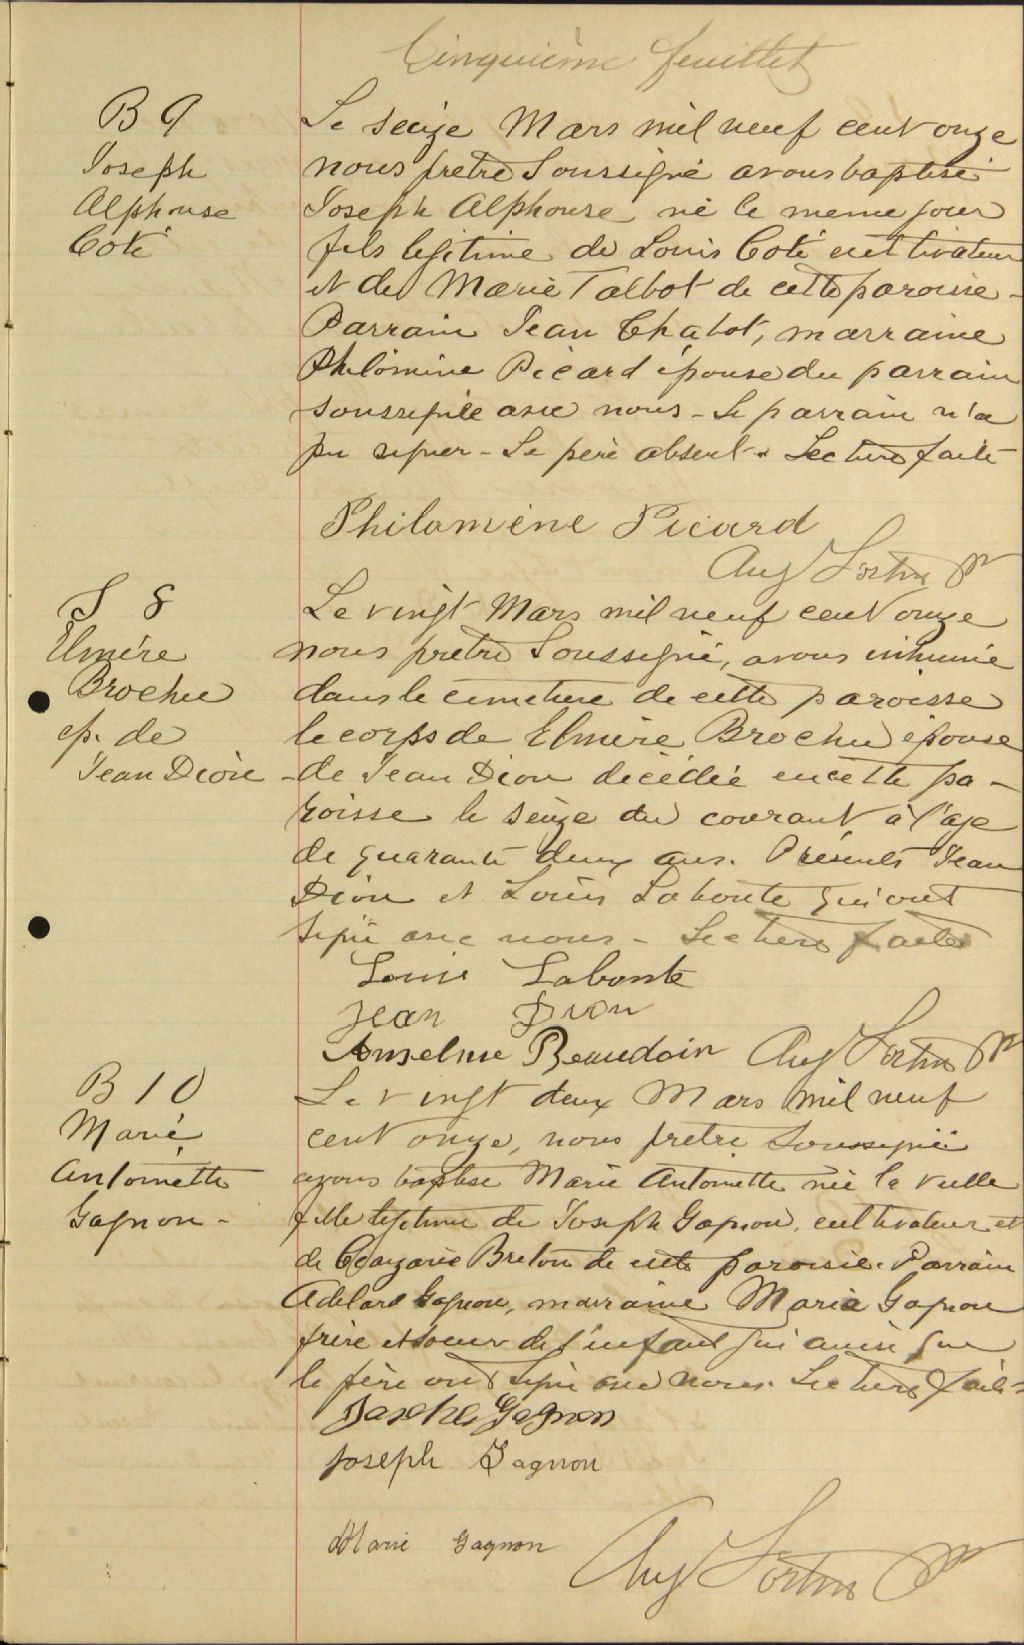 Cinquième feuillet
B 9
Joseph
Alphonse
Coté
Le seize Mars mil neuf cent onze
nous pretre Soussigné avons baptisé
Joseph Alphonse né le meme jour
fils legitime de Louis Coté cultivateur
et de Marie Talbot de cette paroisse -
Parrain Jean Chabot, marraine
Philomine Picard épouse du parrain
soussignée avec nous - Le parrain n'a
pu signer - Le père absent. Lecture faite
Philomène Picard
Aug Fortin Ptr
S 8
Elmére
Brochu
ép. de
Jean Dion
Le vingt Mars mil neuf cent onze
nous pretre Soussigné, avons inhumé
dans le cimetiere de cette paroisse
le corps de Elmére Brochu épouse
de Jean Dion décédée en cette pa-
roisse le seize du courant à l'age
de quarante deux ans. Présents Jean
Dion et Louis Labonte qui ont
signé avec nous - Lecture faite
Louis Labonte
Jean Dion
Anselme Beaudoin Aug Fortin Ptr
B 10
Marie
Antoinette
Gagnon -
Le vingt deux Mars mil neuf
cent onze, nous pretre soussigné
avons baptisé Marie Antoinette née la veille
fille legitime de Joseph Gagnon, cultivateur et
de Breton de cette paroisse. Parrain
Adelard Gagnon, marraine Maria Gagnon
frère et soeur de l'enfant qui ainsi que
le père ont signé avec nous. Lecture faite
Gagnon
Joseph Gagnon
Marie Gagnon
Aug Fortin Ptr